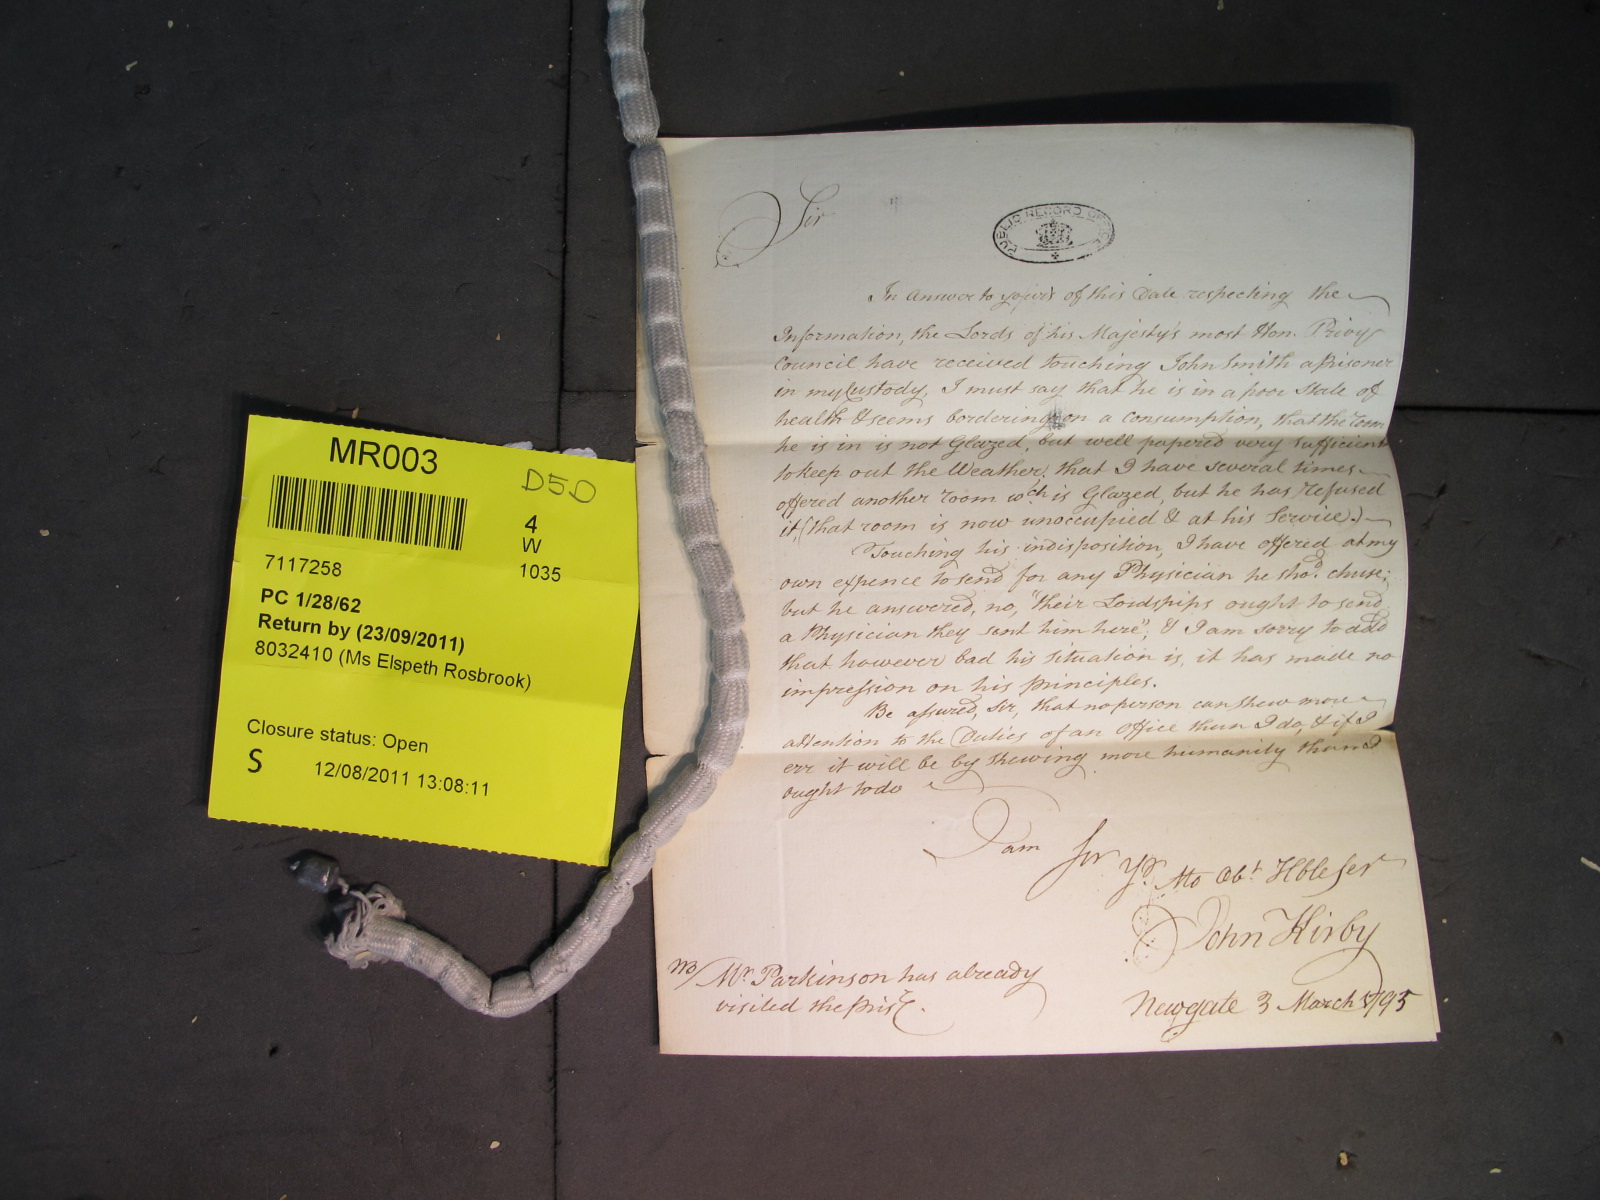 MR003
D5D
4
W
1035
7117258
PC 1/28/62
Return by (23/09/2011)
8032410 (Ms Elspeth Rosbrook)
Closure status: Open
S 12/08/2011 13:08:11
PUBLIC RECORD OFFICE
Sir
In Answer to yours of this Date respecting the
Information, the Lords of his Majesty's most Hon. Privy
Council have received touching John Smith a Prisoner
in my Custody, I must say that he is in a poor State of
health & seems bordering on a Consumption, that the room
he is in is not Glazed, but well papered very sufficient
to keep out the Weather, that I have several times
offered another room wch is Glazed, but he has refused
it, (that room is now unoccupied & at his Service.)
Touching his indisposition, I have offered at my
own expence to send for any Physician he shod. chuse;
but he answered, no, "their Lordships ought to send
a Physician they sent him here", & I am sorry to add
that however bad his situation is, it has made no
impression on his principles.
Be assured, Sir, that no person can shew more
attention to the Duties of an Office than I do, & if I
err it will be by shewing more humanity than I
ought to do
I am Sir Yr. Mo Obt Hble Ser
John Kirby
NB/ Mr Parkinson has already
visited the Prisr.
Newgate 3 March 1795